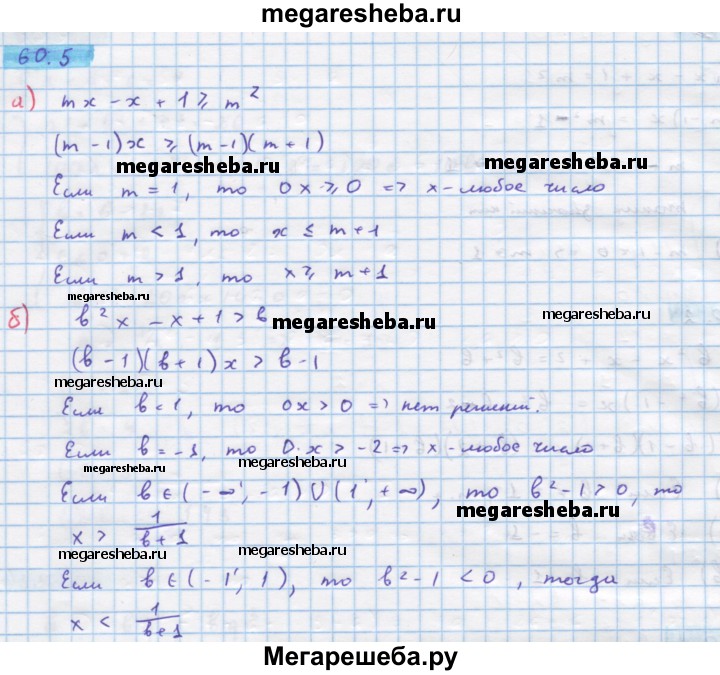 megaresheba.ru
60.5
а) mx - x + 1 ⩾ m²
(m-1)x ⩾ (m-1)(m+1)
megaresheba.ru megaresheba.ru
Если m = 1, то 0x ⩾ 0 => x - любое число
Если m < 1, то x ≤ m+1
Если m > 1, то x ⩾ m+1
megaresheba.ru
б) b²x - x + 1 > b
megaresheba.ru megaresheba.ru
(b-1)(b+1)x > b-1
megaresheba.ru
Если b = 1, то 0x > 0 => нет решений.
Если b = -1, то 0·x > -2 => x - любое число
megaresheba.ru megaresheba.ru
Если b ∈ (-∞; -1) ∪ (1; +∞), то b²-1 > 0, то
megaresheba.ru
x > 1/(b+1)
megaresheba.ru megaresheba.ru
Если b ∈ (-1; 1), то b²-1 < 0, тогда
x < 1/(b+1)
Мегарешеба.ру